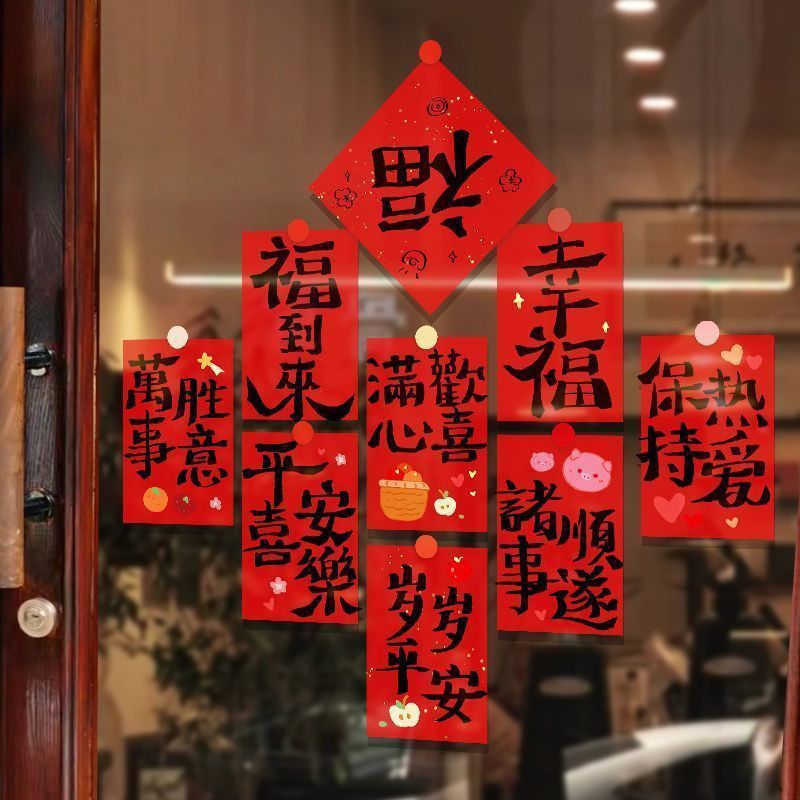 福
福到來
幸福
萬事
胜意
滿心
歡喜
保持
热爱
平安
喜樂
諸事
順遂
岁岁
平安